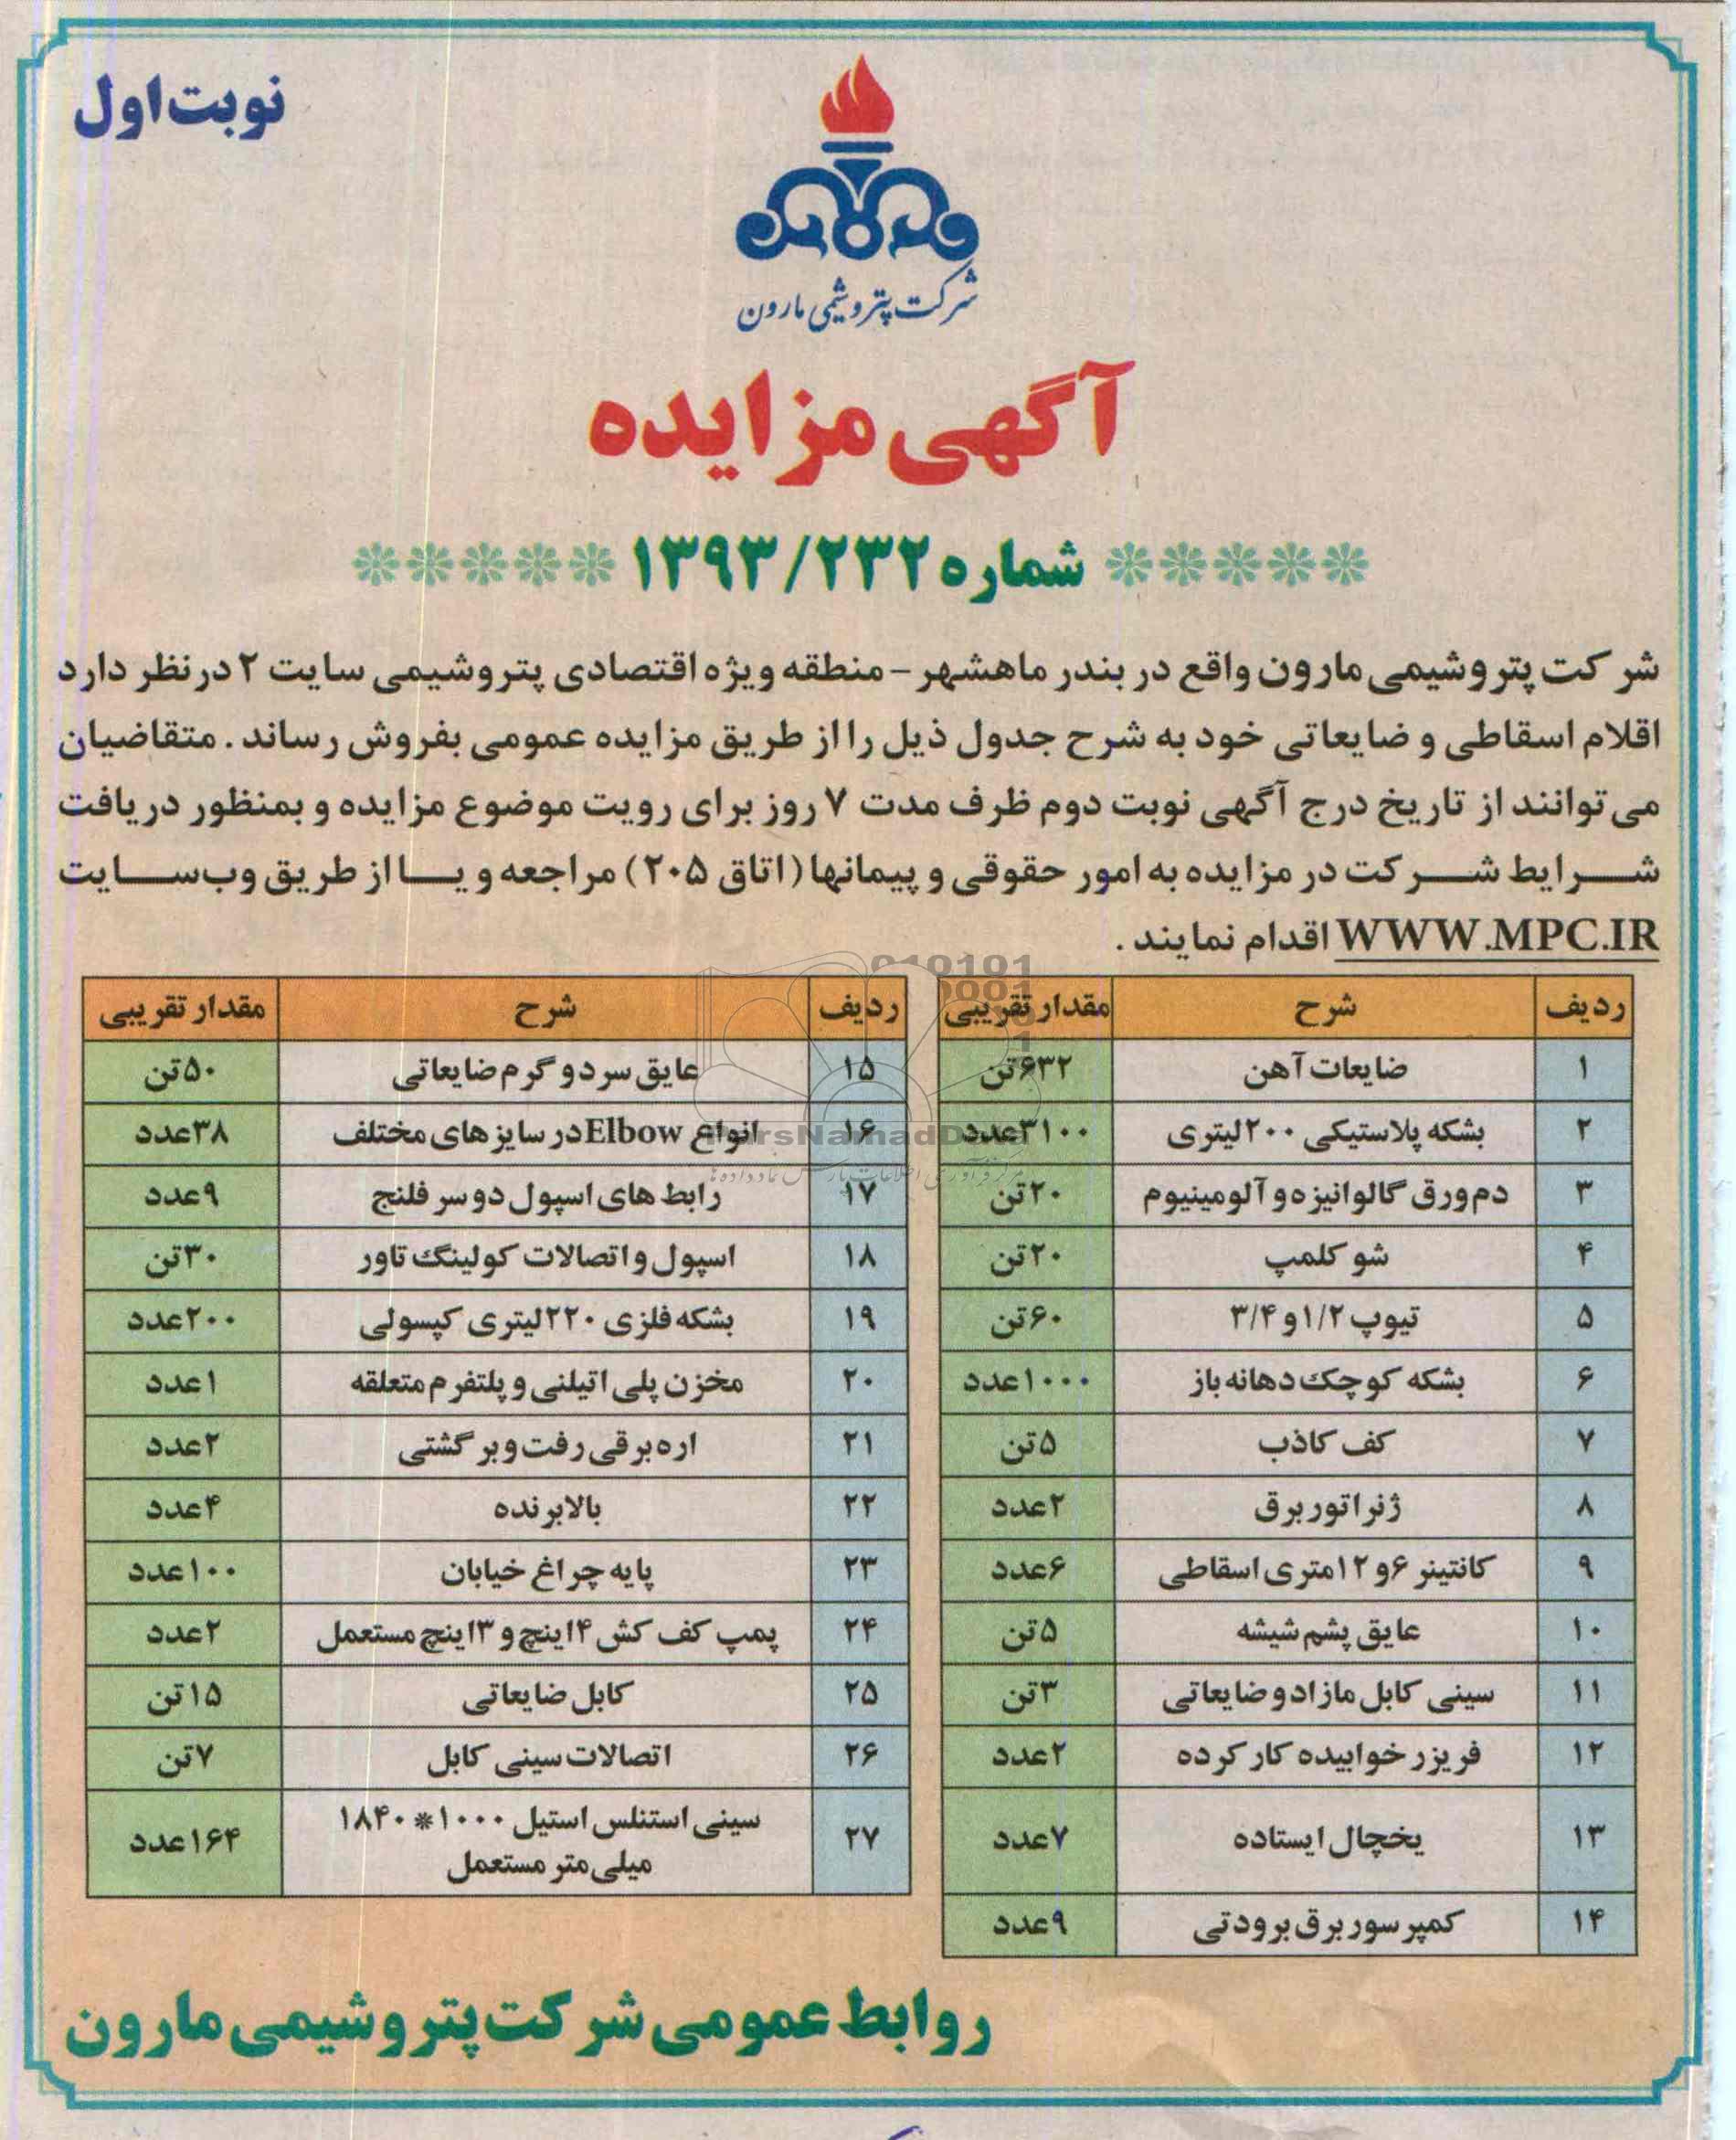 نوبت اول
شرکت پتروشیمی مارون
آگهی مزایده
شماره ۱۳۹۳/۲۳۲
شرکت پتروشیمی مارون واقع در بندر ماهشهر - منطقه ویژه اقتصادی پتروشیمی سایت ۲ درنظر دارد
اقلام اسقاطی و ضایعاتی خود به شرح جدول ذیل را از طریق مزایده عمومی بفروش رساند. متقاضیان
می توانند از تاریخ درج آگهی نوبت دوم ظرف مدت ۷ روز برای رویت موضوع مزایده و بمنظور دریافت
شرایط شرکت در مزایده به امور حقوقی و پیمانها (اتاق ۲۰۵) مراجعه و یا از طریق وب سایت
WWW.MPC.IR اقدام نمایند.
ردیف شرح مقدار تقریبی
۱ ضایعات آهن ۶۳۲تن
۲ بشکه پلاستیکی ۲۰۰لیتری ۳۱۰۰عدد
۳ دم ورق گالوانیزه و آلومینیوم ۲۰تن
۴ شو کلمپ ۲۰تن
۵ تیوپ ۱/۲و۳/۴ ۶۰تن
۶ بشکه کوچک دهانه باز ۱۰۰۰عدد
۷ کف کاذب ۵تن
۸ ژنراتور برق ۲عدد
۹ کانتینر ۶و۱۲متری اسقاطی ۶عدد
۱۰ عایق پشم شیشه ۵تن
۱۱ سینی کابل مازاد و ضایعاتی ۳تن
۱۲ فریزر خوابیده کار کرده ۲عدد
۱۳ یخچال ایستاده ۷عدد
۱۴ کمپرسور برق برودتی ۹عدد
ردیف شرح مقدار تقریبی
۱۵ عایق سرد و گرم ضایعاتی ۵۰تن
۱۶ انواع Elbow در سایزهای مختلف ۳۸عدد
۱۷ رابط های اسپول دو سر فلنج ۹عدد
۱۸ اسپول و اتصالات کولینگ تاور ۳۰تن
۱۹ بشکه فلزی ۲۲۰لیتری کپسولی ۲۰۰عدد
۲۰ مخزن پلی اتیلنی و پلتفرم متعلقه ۱عدد
۲۱ اره برقی رفت و برگشتی ۲عدد
۲۲ بالابرنده ۴عدد
۲۳ پایه چراغ خیابان ۱۰۰عدد
۲۴ پمپ کف کش ۴اینچ و ۳اینچ مستعمل ۲عدد
۲۵ کابل ضایعاتی ۱۵تن
۲۶ اتصالات سینی کابل ۷تن
۲۷ سینی استنلس استیل ۱۰۰۰*۱۸۴۰
میلی متر مستعمل ۱۶۴عدد
روابط عمومی شرکت پتروشیمی مارون